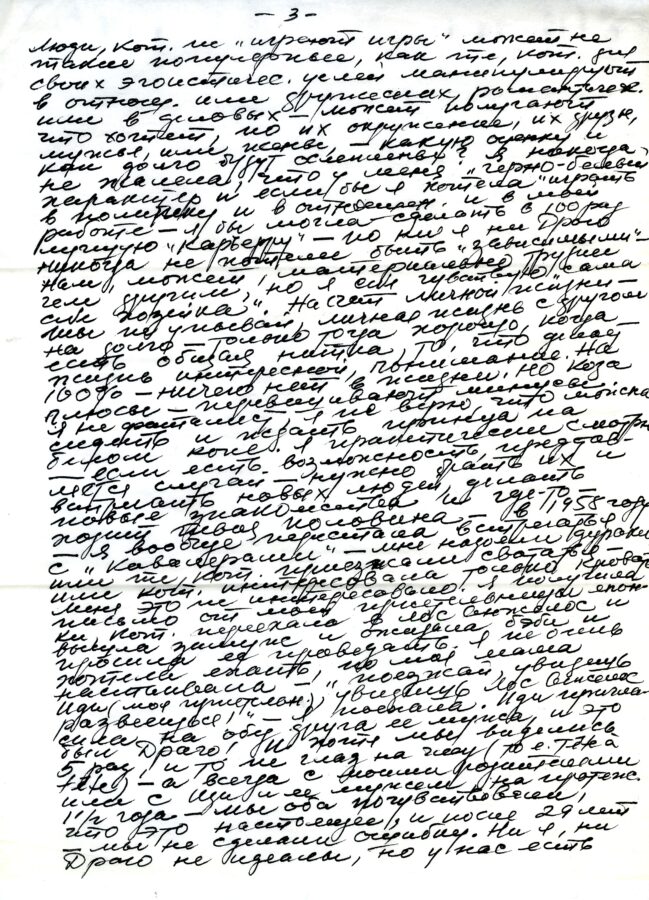 — 3 —
люди, кот. не "играют игры" может не
такие популярные, как те, кот. для
своих эгоистичес. целей манипулируют
в отнош. или дружеских, романтичек.
или в деловых — может получают
что хотят, но их окружение, их друзья,
мужья или жены, — какую оценку и
как долго будут ослеплены? Я никогда
не жалела, что у меня "черно-белый"
характер и если бы я хотела "играть
в политику и в отношен. и в моей
работе — я бы могла сделать в 100 раз
лучшую "карьеру" — но ни я ни Драго
никогда не хотели быть "зависимыми" —
нам, может, материально труднее
чем другим, но я себя чувствую "сама
себе хозяйка". Насчет личной жизни —
ты не унывай, личная жизнь с другом
на долго — только тогда хорошо, когда
есть общая нитка, то, что делает
жизнь интересной, понимание. На
100% — ничего нет в жизни. Но когда
плюсы — перевешивают минусы
Я не фаталист, я не верю что
сидеть и ждать принца на
белом коне. Я практически смотрю
— если есть возможность, представ-
ляется случай — нужно брать их и
встречать новых людей, делать
новые знакомства и где-то —
ходит твоя половина — в 1958 году
— я вообще перестала встречаться
с "кавалерами" — мне надоели дураки
или те, кот. приезжали свататься
или кот. интересовала только кровать
меня это не интересовало. Я получила
письмо от моей приятельницы япон-
ки кот. переехала в Лос Анжелос и
вышла замуж и ожидала бэби и
просила ее проведать. Я не очень
хотела ехать, но моя мама
настаивала — "поезжай, увидишь
Иди (моя приятельн.), увидишь Лос Анжелос
развеешься!" — Я поехала. Иди пригла-
сила на обед друга ее мужа, и это
был Драго! И хотя мы виделись
5 раз, и то не глаз на глаз (т.е.
) — а всегда с моими родителями
или с Иди и ее мужем на протяж.
1½ года — мы оба почувствовали,
что это настоящее, и после 29 лет
— мы не сделали ошибку. Ни я, ни
Драго не идеалы, но у нас есть